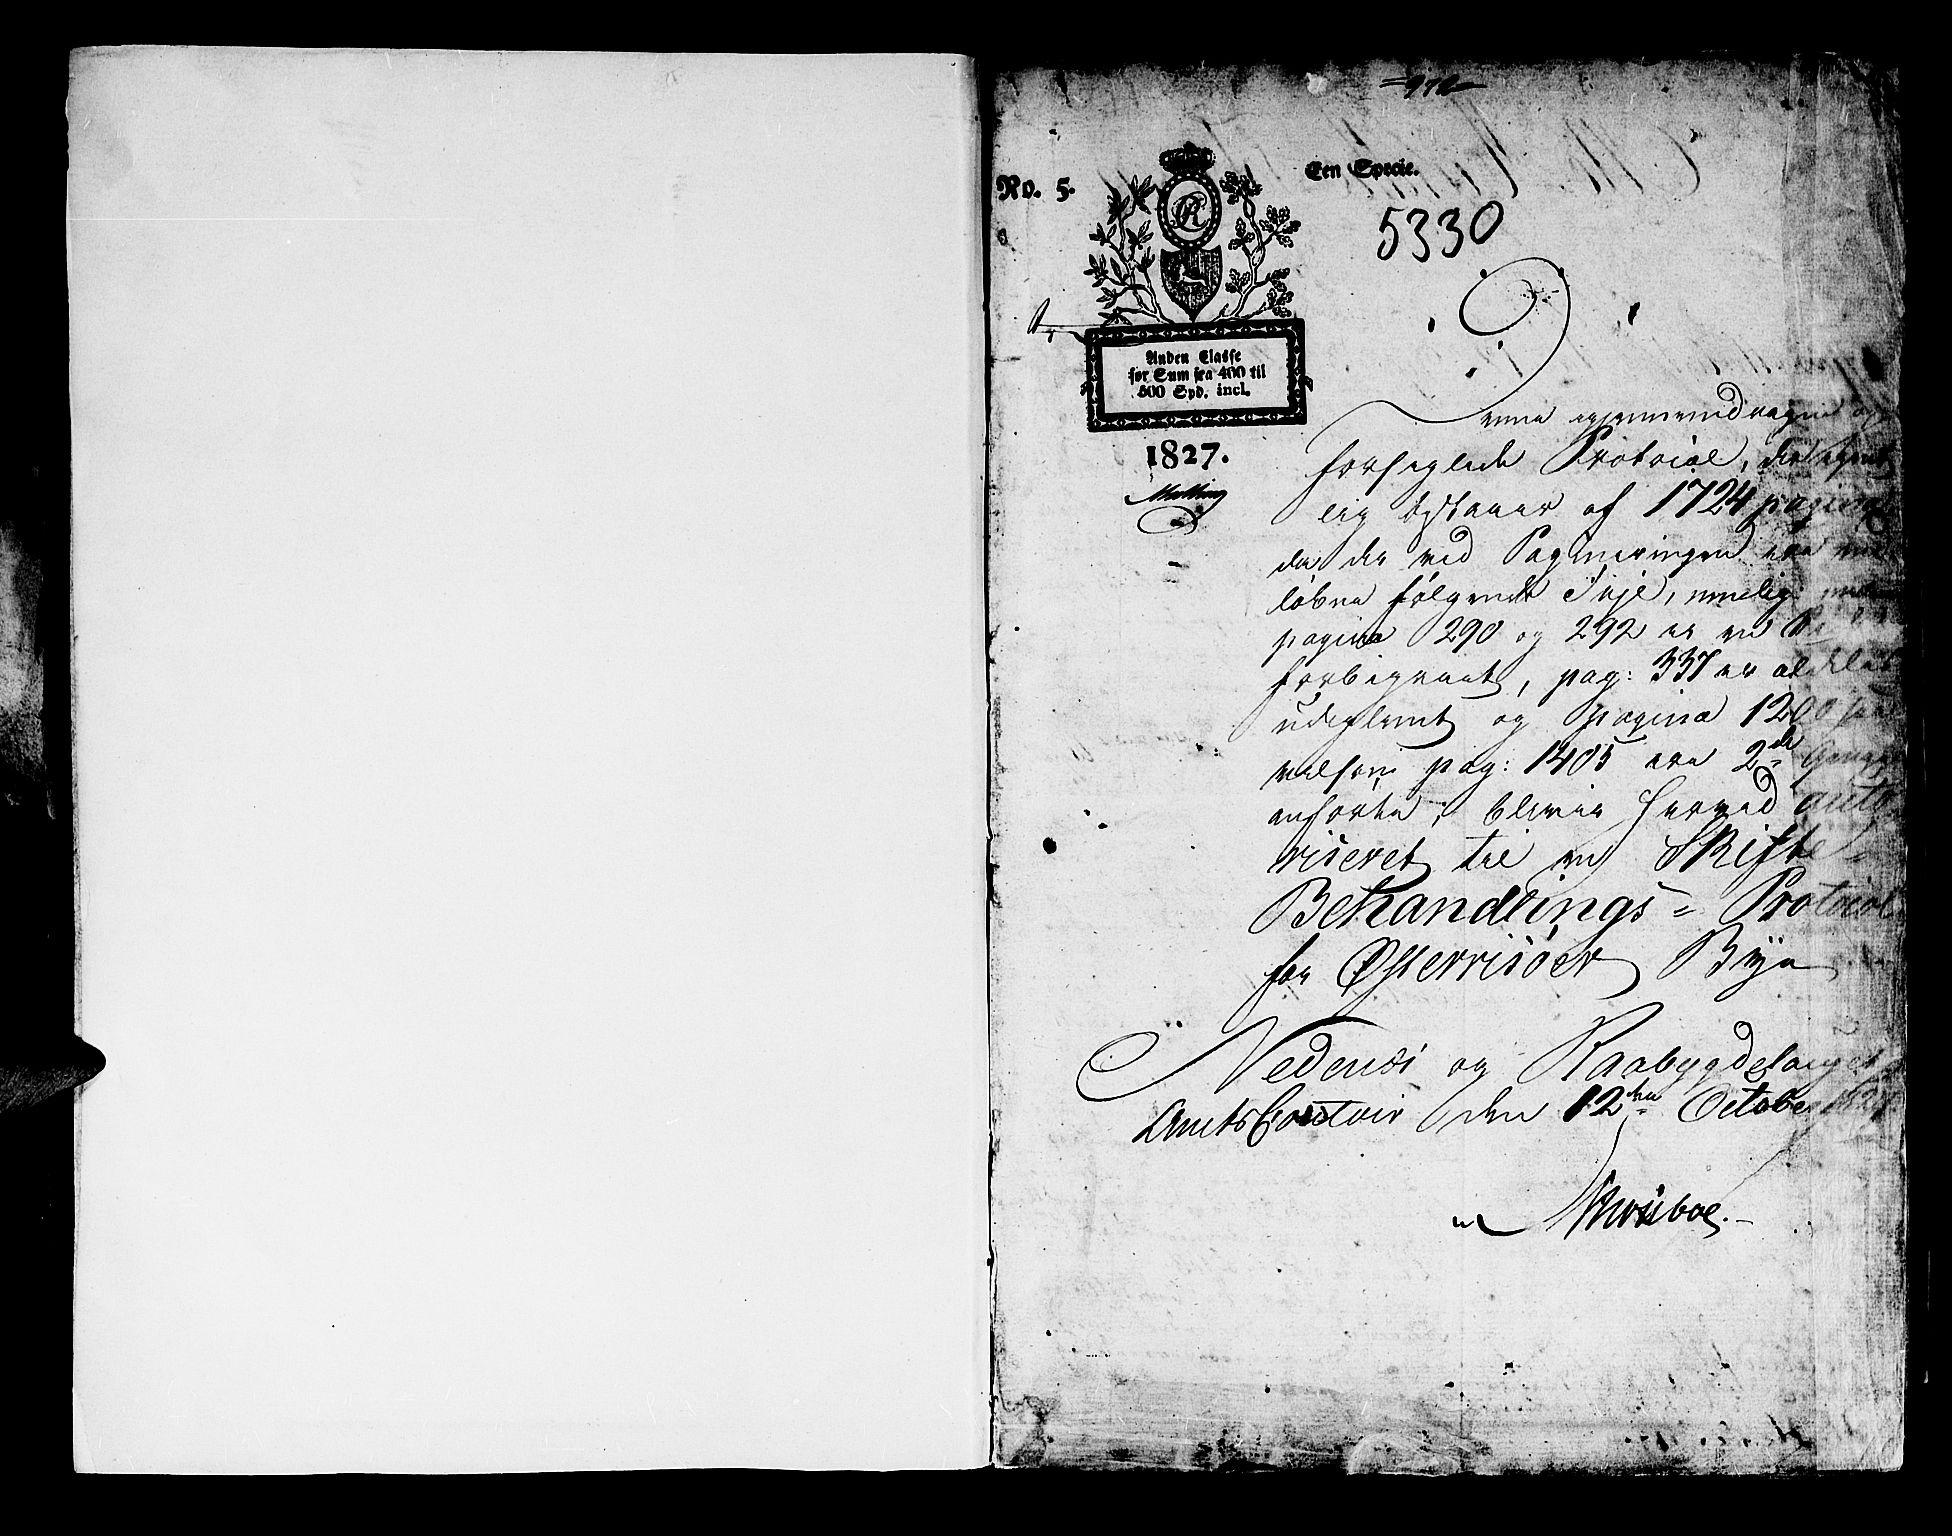 =972=
No. 5.
Een Specie.
5330
Anden Classe
for Sum fra 400 til
500 Spd. incl.
1827.
Denne igjennemdragne og
forseglede Protocol, der egent
lig bestaaer af 1724 pagina
da der ved Pagineringen ere
løbne følgende Feil, nemlig:
pagina 290 og 292 er en
forbigaaet, pag: 337 er
udeglemt og pagina 1200
velsom pag: 1405 ere 2de Gange
anførte, bliver herved auto
riseret til en Skifte-
Behandlings= Protocol
for Østerrisøer Bye
Nedenæs og Raabygdelaugets
Amts Contoir den 12te October 1827